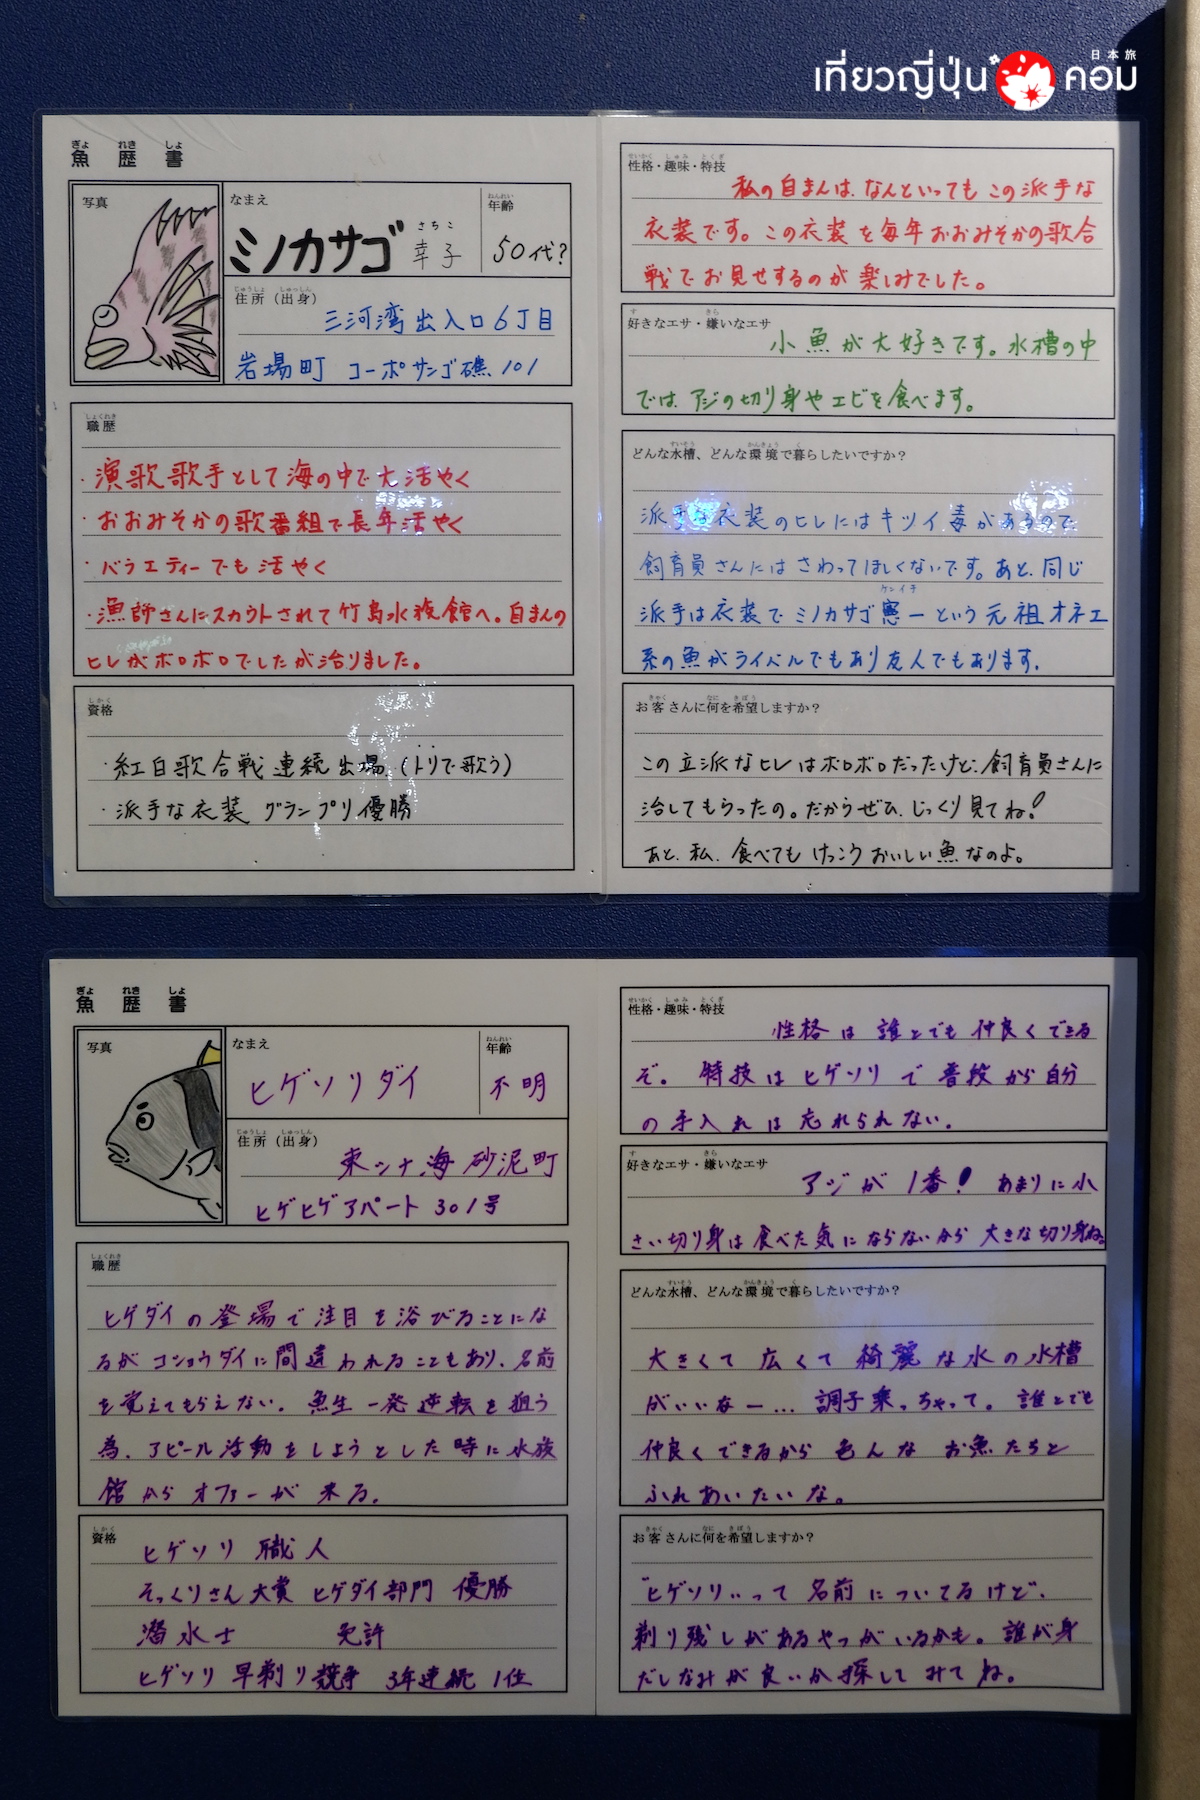 日本旅
เที่ยวญี่ปุ่น คอม
ぎょ れき しょ
魚歴書
写真
なまえ
さちこ
ミノカサゴ 幸子
ねんれい
年齢
50代?
じゅうしょ しゅっしん
住所(出身)
三河湾出入口6丁目
岩場町 コーポサンゴ礁101
しょくれき
職歴
・演歌歌手として海の中で大活やく
・おおみそかの歌番組で長年活やく
・バラエティーでも活やく
・漁師さんにスカウトされて竹島水族館へ。自まんの
ヒレがボロボロでしたが治りました。
しかく
資格
・紅白歌合戦連続出場(トリで歌う)
・派手な衣装グランプリ優勝
せいかく しゅみ とくぎ
性格・趣味・特技
私の自まんは、なんといってもこの派手な
衣装です。この衣装を毎年おおみそかの歌合
戦でお見せするのが楽しみでした。
す きら
好きなエサ・嫌いなエサ
小魚が大好きです。水槽の中
では、アジの切り身やエビを食べます。
すいそう かんきょう く
どんな水槽、どんな環境で暮らしたいですか?
派手な衣装のヒレにはキツイ毒があるので
飼育員さんにはさわってほしくないです。あと、同じ
ケンイチ
派手は衣装でミノカサゴ憲一という元祖オネエ
系の魚がライバルでもあり友人でもあります。
きゃく なに きぼう
お客さんに何を希望しますか?
この立派なヒレはボロボロだったけど、飼育員さんに
治してもらったの。だからぜひ、じっくり見てね!
あと、私、食べてもけっこうおいしい魚なのよ。
ぎょ れき しょ
魚歴書
写真
なまえ
ヒゲソリダイ
ねんれい
年齢
不明
じゅうしょ しゅっしん
住所(出身)
東シナ海砂泥町
ヒゲヒゲアパート301号
しょくれき
職歴
ヒゲダイの登場で注目を浴びることにな
るがコショウダイに間違われることもあり、名前
を覚えてもらえない。魚生一発逆転を狙う
為、アピール活動をしようとした時に水族
館からオファーが来る。
しかく
資格
ヒゲソリ職人
そっくりさん大賞 ヒゲダイ部門 優勝
潜水士 免許
ヒゲソリ早剃り競争 3年連続1位
せいかく しゅみ とくぎ
性格・趣味・特技
性格は誰とでも仲良くできる
ぞ。特技はヒゲソリで普段から自分
の手入れは忘れられない。
す きら
好きなエサ・嫌いなエサ
アジが1番! あまりに小
さい切り身は食べた気にならないから大きな切り身ね。
すいそう かんきょう く
どんな水槽、どんな環境で暮らしたいですか?
大きくて広くて綺麗な水の水槽
がいいなー…調子乗っちゃって。誰とでも
仲良くできるから色んなお魚たちと
ふれあいたいな。
きゃく なに きぼう
お客さんに何を希望しますか?
"ヒゲソリ"って名前についてるけど、
剃り残しがあるやつがいるかも。誰が身
だしなみが良いか探してみてね。